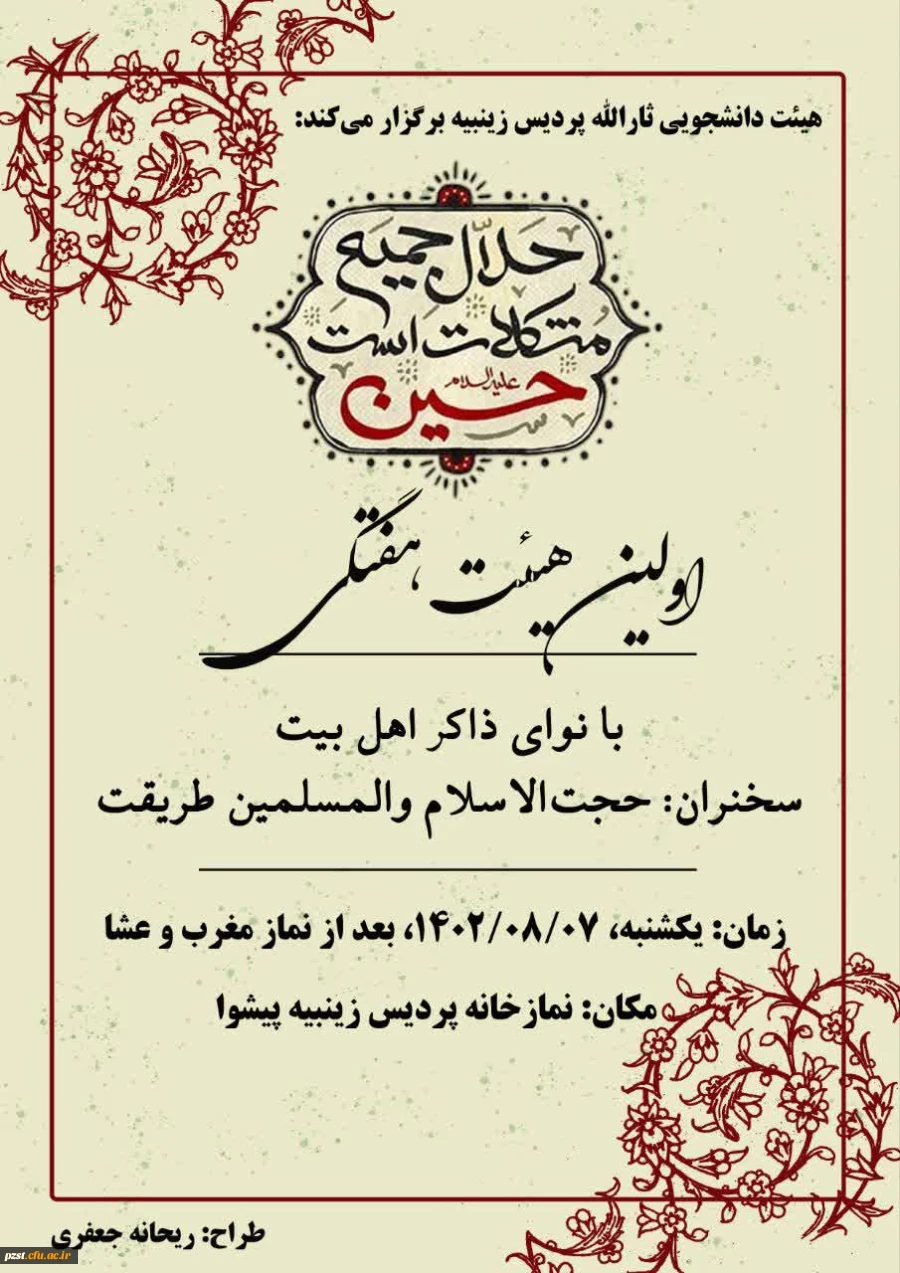 هیئت دانشجویی ثارالله پردیس زینبیه برگزار می‌کند:
حلّال جمیع
مشکلات است
حسین علیه‌السلام
اولین هیئت هفتگی
با نوای ذاکر اهل بیت
سخنران: حجت‌الاسلام والمسلمین طریقت
زمان: یکشنبه، ۱۴۰۲/۰۸/۰۷، بعد از نماز مغرب و عشا
مکان: نمازخانه پردیس زینبیه پیشوا
طراح: ریحانه جعفری
pzst.cfu.ac.ir